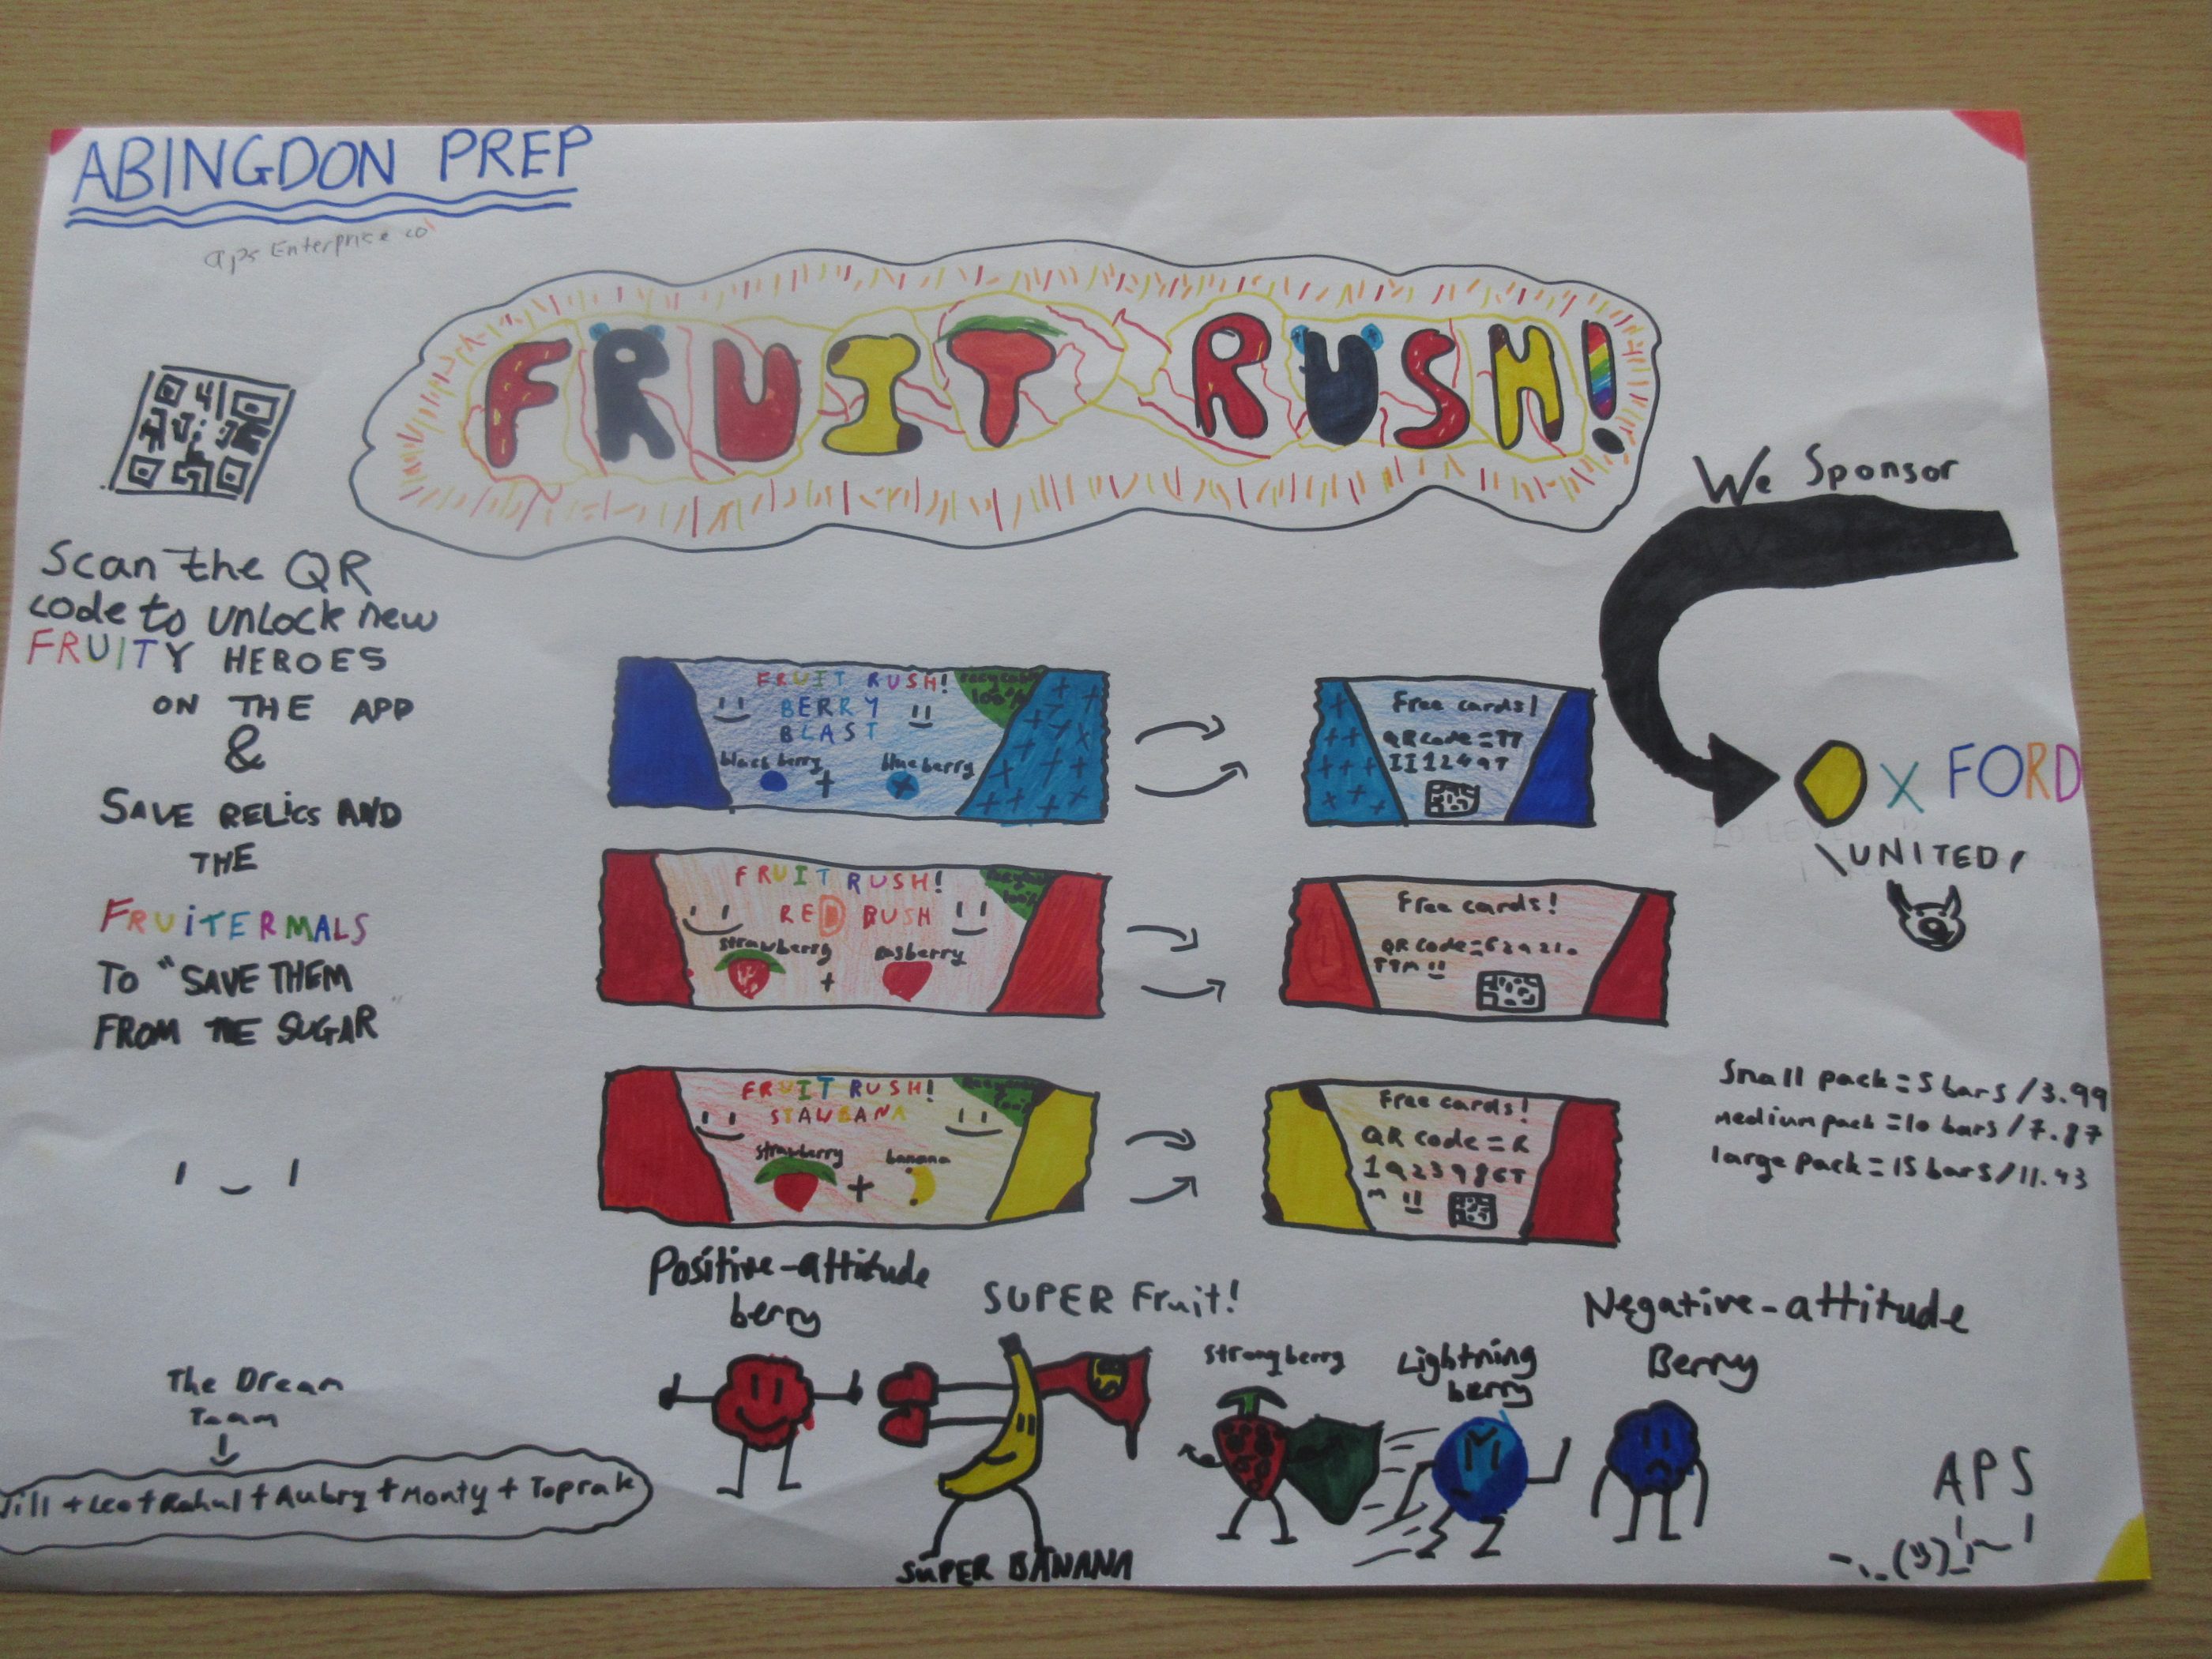 ABINGDON PREP
aps Enterprise co
FRUIT RUSH!
Scan the QR
code to unlock new
FRUITY HEROES
ON THE APP
&
SAVE RELICS AND
THE
FRUITERMALS
TO "SAVE THEM
FROM THE SUGAR"
We Sponsor
X FORD
UNITED
FRUIT RUSH!
BERRY
BLAST
100%
blackberry
+
blueberry
Free cards!
QR code = TT
FRUIT RUSH!
RED BUSH
strawberry
+
rasberry
Free cards!
FRUIT RUSH!
STAWBANA
strawberry
+
banana
Free cards!
QR code = R
Small pack = 5 bars / 3.99
medium pack = 10 bars / 7.87
large pack = 15 bars / 11.43
Positive-attitude
berry
SUPER Fruit!
SUPER BANANA
Strongberry
Lightning
berry
Negative-attitude
Berry
The Dream
Team
+ Leo + Rahul + Aubry + Monty + Toprak
APS